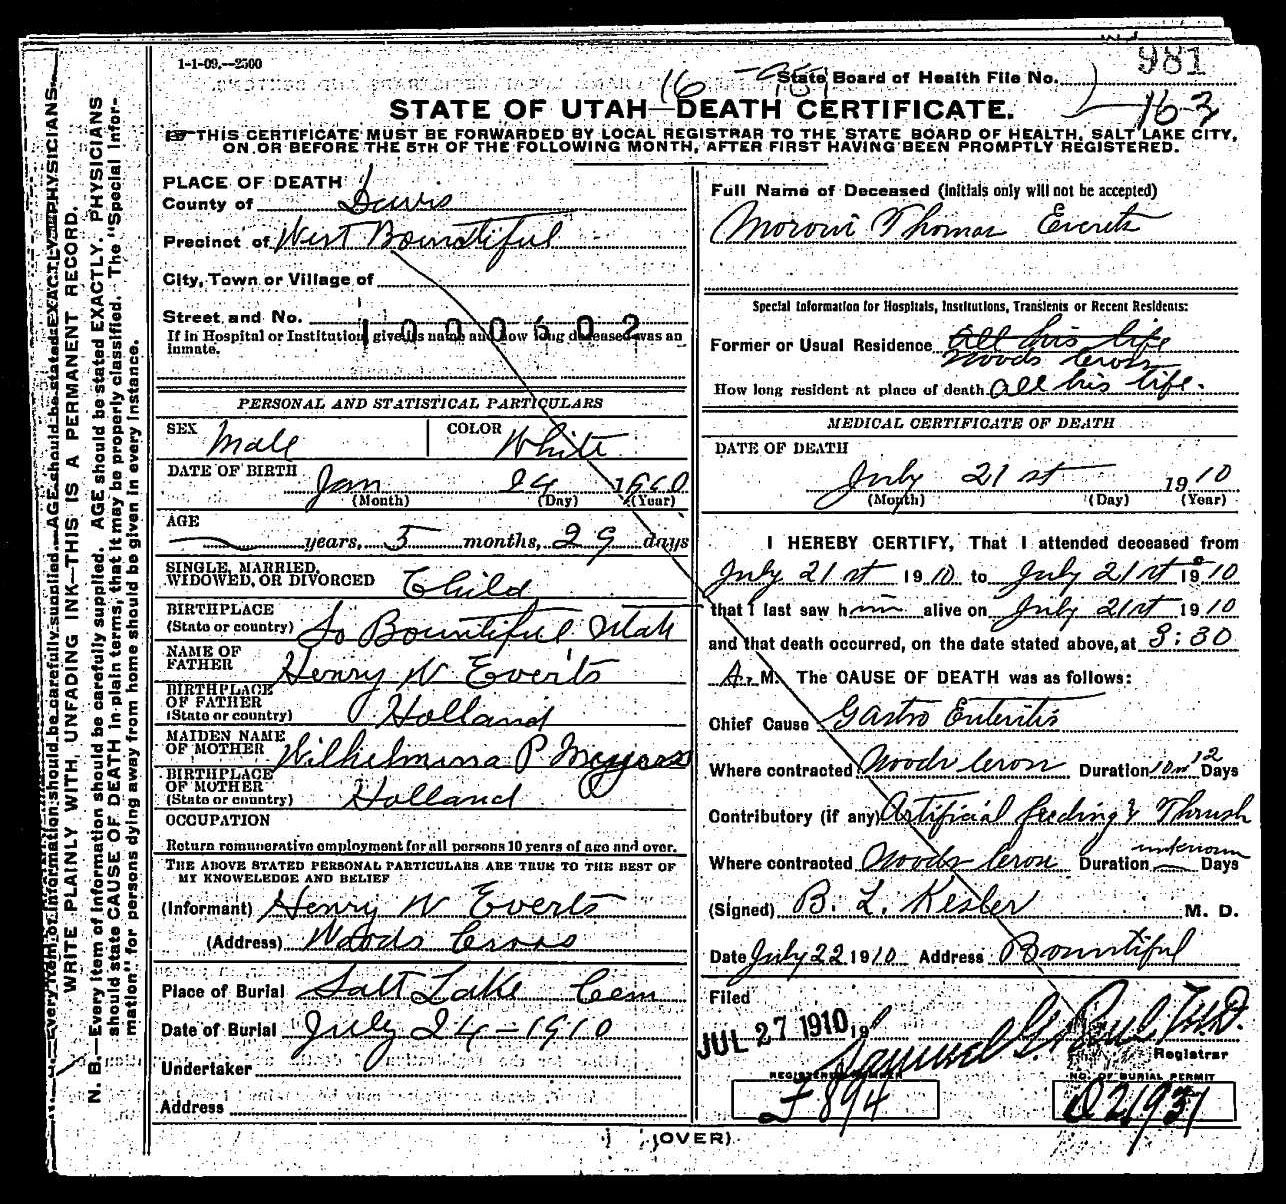 1-1-09.—2500
981
State Board of Health File No.
16-981
163
STATE OF UTAH—DEATH CERTIFICATE.
THIS CERTIFICATE MUST BE FORWARDED BY LOCAL REGISTRAR TO THE STATE BOARD OF HEALTH, SALT LAKE CITY,
ON OR BEFORE THE 5TH OF THE FOLLOWING MONTH, AFTER FIRST HAVING BEEN PROMPTLY REGISTERED.
PLACE OF DEATH
County of Davis
Precinct of West Bountiful
City, Town or Village of
Street and No.
1000502
If in Hospital or Institution, give its name and how long deceased was an
inmate.
PERSONAL AND STATISTICAL PARTICULARS
SEX Male COLOR White
DATE OF BIRTH Jan 24 1910
(Month) (Day) (Year)
AGE
— years, 5 months, 29 days
SINGLE, MARRIED,
WIDOWED, OR DIVORCED Child
BIRTHPLACE
(State or country) So Bountiful Utah
NAME OF
FATHER Henry W Everts
BIRTHPLACE
OF FATHER
(State or country) Holland
MAIDEN NAME
OF MOTHER Wilhelmina P
BIRTHPLACE
OF MOTHER
(State or country) Holland
OCCUPATION
Return remunerative employment for all persons 10 years of age and over.
THE ABOVE STATED PERSONAL PARTICULARS ARE TRUE TO THE BEST OF
MY KNOWLEDGE AND BELIEF
(Informant) Henry W Everts
(Address) Woods Cross
Place of Burial Salt Lake Cem
Date of Burial July 24-1910
Undertaker
Address
Full Name of Deceased (initials only will not be accepted)
Moroni Thomas Everts
Special Information for Hospitals, Institutions, Transients or Recent Residents:
Former or Usual Residence All his life
Woods Cross
How long resident at place of death All his life.
MEDICAL CERTIFICATE OF DEATH
DATE OF DEATH
July 21st 1910
(Month) (Day) (Year)
I HEREBY CERTIFY, That I attended deceased from
July 21st 1910 to July 21st 1910
that I last saw him alive on July 21st 1910
and that death occurred, on the date stated above, at 3:30
A. M. The CAUSE OF DEATH was as follows:
Chief Cause Gastro Enteritis
Where contracted Woods Cross Duration 10 or 12 Days
Contributory (if any) Artificial feeding & Thrush
Where contracted Woods Cross Duration unknown Days
(Signed) B. L. Kesler M. D.
Date July 22 1910 Address Bountiful
Filed
JUL 27 1910 19
Samuel G. Paul, M.D.
Registrar
REGISTERED NUMBER
F894
NO. OF BURIAL PERMIT
D21931
(OVER)
N. B.—Every item of information should be carefully supplied. AGE should be stated EXACTLY. PHYSICIANS
WRITE PLAINLY WITH UNFADING INK—THIS IS A PERMANENT RECORD.
N. B.—Every item of information should be carefully supplied. AGE should be stated EXACTLY. PHYSICIANS
should state CAUSE OF DEATH in plain terms, that it may be properly classified. The "Special Infor-
mation" for persons dying away from home should be given in every instance.